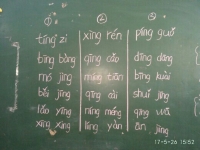 ① ② ③
tíng zi xīng rén píng guǒ
bīng bàng qīng cǎo dīng dāng
mó jìng míng tiān bīng kuài
běi jīng qíng shuǐ jīng
lǎo yīng níng méng qīng wā
xīng xing líng yàn ān jìng
17-5-26 15:52